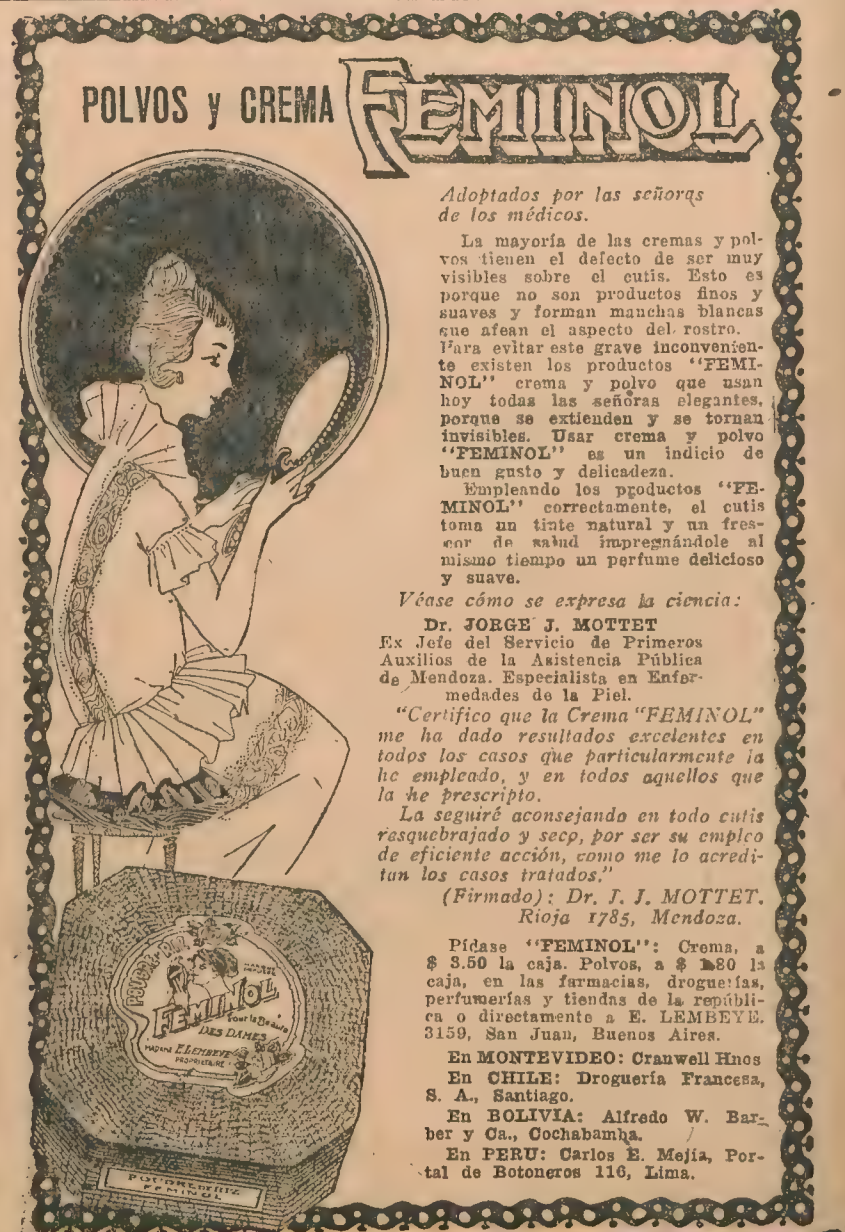 POLVOS y CREMA FEMINOL
Adoptados por las señoras
de los médicos.
La mayoría de las cremas y pol-
vos tienen el defecto de ser muy
visibles sobre el cutis. Esto es
porque no son productos finos y
suaves y forman manchas blancas
que afean el aspecto del rostro.
Para evitar este grave inconvenien-
te existen los productos "FEMI-
NOL" crema y polvo que usan
hoy todas las señoras elegantes,
porque se extienden y se tornan
invisibles. Usar crema y polvo
"FEMINOL" es un indicio de
buen gusto y delicadeza.
Empleando los productos "FE-
MINOL" correctamente, el cutis
toma un tinte natural y un fres-
cor de salud impregnándole al
mismo tiempo un perfume delicioso
y suave.
Véase cómo se expresa la ciencia:
Dr. JORGE J. MOTTET
Ex Jefe del Servicio de Primeros
Auxilios de la Asistencia Pública
de Mendoza. Especialista en Enfer-
medades de la Piel.
"Certifico que la Crema "FEMINOL"
me ha dado resultados excelentes en
todos los casos que particularmente la
he empleado, y en todos aquellos que
la he prescripto.
La seguiré aconsejando en todo cutis
resquebrajado y seco, por ser su empleo
de eficiente acción, como me lo acredi-
tan los casos tratados."
(Firmado): Dr. J. J. MOTTET.
Rioja 1785, Mendoza.
Pídase "FEMINOL": Crema, a
$ 3.50 la caja. Polvos, a $ 1.80 la
caja, en las farmacias, droguerías,
perfumerías y tiendas de la repúbli-
ca o directamente a E. LEMBEYE.
3159, San Juan, Buenos Aires.
En MONTEVIDEO: Cranwell Hnos
En CHILE: Droguería Francesa,
S. A., Santiago.
En BOLIVIA: Alfredo W. Bar-
ber y Ca., Cochabamba.
En PERU: Carlos E. Mejía, Por-
tal de Botoneros 116, Lima.
POUDRE DE RIZ
FEMINOL
Pour la Beauté
DES DAMES
MADAME E. LEMBEYE
PROPRIETAIRE
POUDRE DE RIZ
FEMINOL